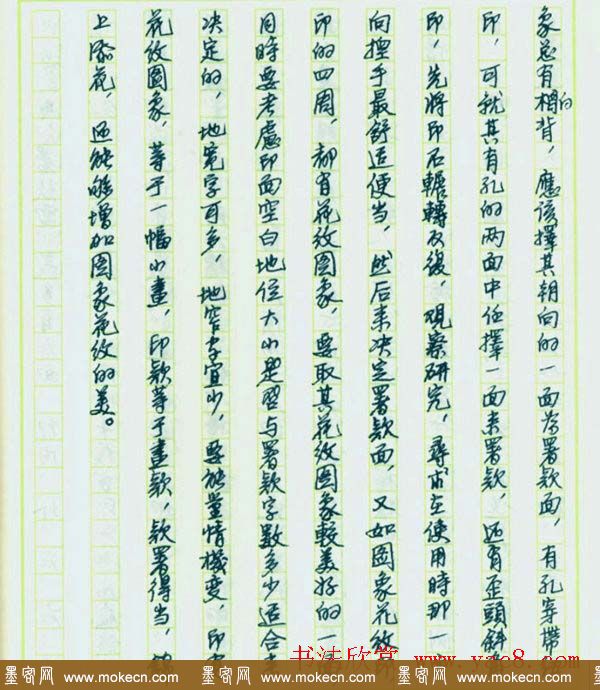 象总有相向背，應该擇其朝向的一面为署款面，有孔穿帶
印，可就其有孔的两面中任擇一面来署款，还有歪頭斜
印，先將印石輾轉反復，观察研究，尋求在使用時那一
向捏于最舒适便当，然后来决定署款面，又如圖象花紋
印的四周，都有花紋圖象，要取其花紋圖象較美好的一
同時要考慮印面空白地位大小是否与署款字数多少适合
决定的，地寬字可多，地窄字宜少，要能量情機变，印
花紋圖象，等于一幅小畫，印款等于畫款，款署得当，
上添花，还能够增加圖象花紋的美。
书法欣赏 www.yac8.com
墨客网 www.mokecn.com 墨客网 www.mokecn.com 墨客网 www.mokecn.com